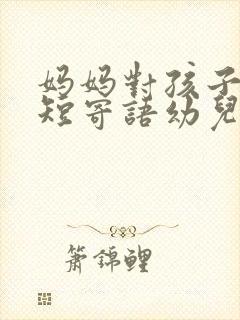 妈妈對孩子
短寄語幼兒
箫錦鲤